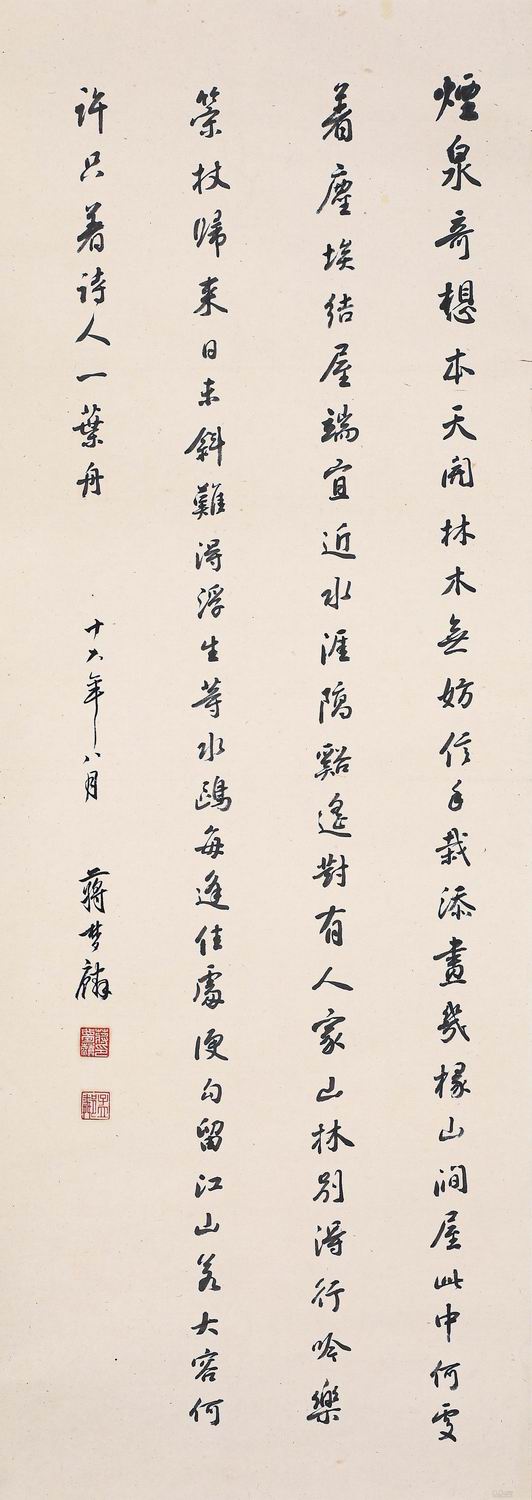 煙泉奇想本天開林木無妨信手栽添畫幾椽山澗屋此中何處
著塵埃結屋端宜近水涯隔谿遙對有人家山林別得行吟樂
策杖歸來日未斜難得浮生等水鷗每逢佳處便勾留江山若大容何
許只著詩人一葉舟
十六年八月
蔣夢麟